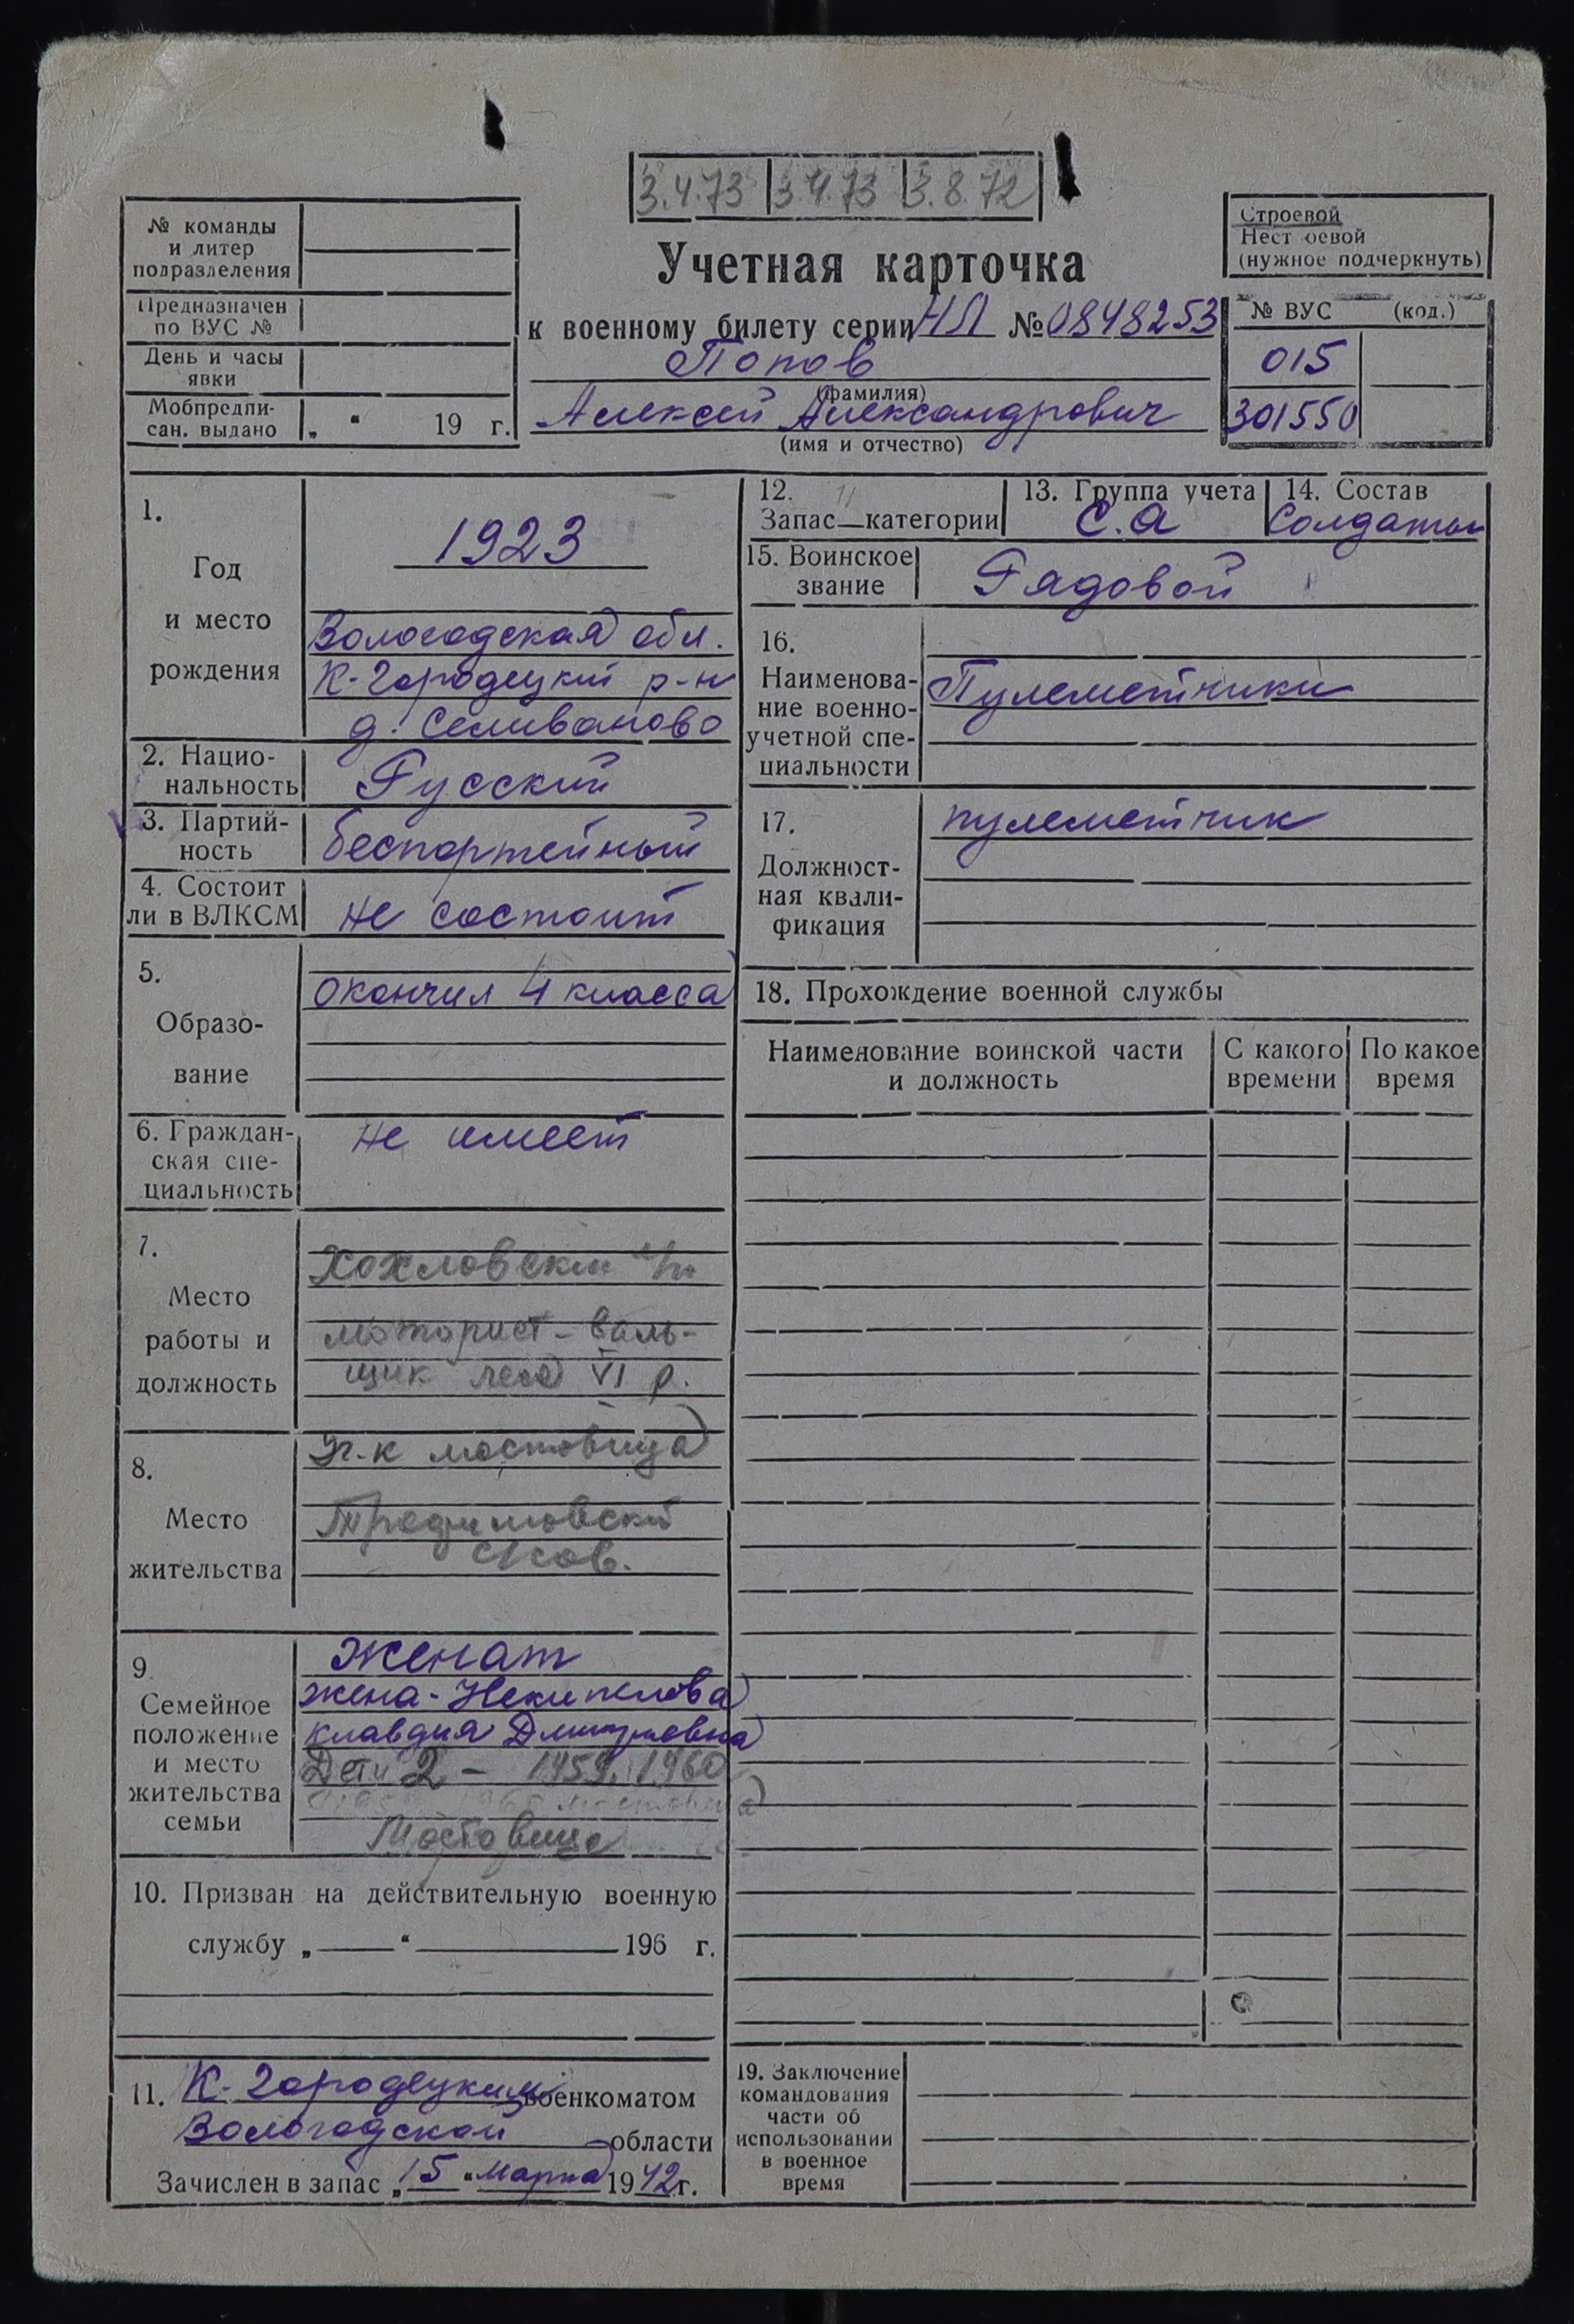 3.4.73 3.4.73 3.8.72
№ команды
и литер
подразделения
Предназначен
по ВУС №
День и часы
явки
Мобпредпи-
сан. выдано „ “ 19 г.
Учетная карточка
к военному билету серии НЛ № 0848253
Попов
(фамилия)
Алексей Александрович
(имя и отчество)
Строевой
Нест оевой
(нужное подчеркнуть)
№ ВУС (код.)
015
301550
1.
Год
и место
рождения
1923
Вологодская обл.
К-Городецкий р-н
д. Селиваново
2. Нацио-
нальность Русский
3. Партий-
ность беспартейный
4. Состоит
ли в ВЛКСМ не состоит
5.
Образо-
вание
окончил 4 класса
6. Граждан-
ская спе-
циальность
не имеет
7.
Место
работы и
должность
Хохловский л/п
моторист-валь-
щик леса VI р.
8.
Место
жительства
мостовица
сков.
9.
Семейное
положение
и место
жительства
семьи
Женат
жена - Некипелова
Клавдия Дмитриевна
Дети 2 - 1959, 1960
Мостовица
10. Призван на действительную военную
службу „ “ 196 г.
11. К-Городецким военкоматом
Вологодской области
Зачислен в запас „15“ марта 1942 г.
12.
Запас категории
13. Группа учета
С.А
14. Состав
Солдаты
15. Воинское
звание Рядовой
16.
Наименова-
ние военно-
учетной спе-
циальности
Пулеметчики
17.
Должност-
ная квали-
фикация
пулеметчик
18. Прохождение военной службы
Наименование воинской части
и должность
С какого
времени
По какое
время
19. Заключение
командования
части об
использовании
в военное
время